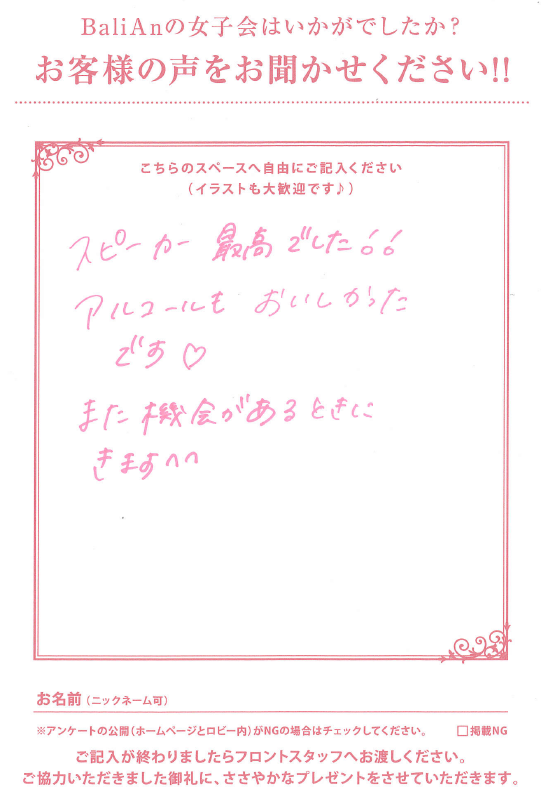 BaliAnの女子会はいかがでしたか？
お客様の声をお聞かせください!!
こちらのスペースへ自由にご記入ください
（イラストも大歓迎です♪）
スピーカー 最高でした!!
アルコールも おいしかった
です♡
また機会があるときに
きます^^
お名前（ニックネーム可）
※アンケートの公開（ホームページとロビー内）がNGの場合はチェックしてください。 □掲載NG
ご記入が終わりましたらフロントスタッフへお渡しください。
ご協力いただきました御礼に、ささやかなプレゼントをさせていただきます。